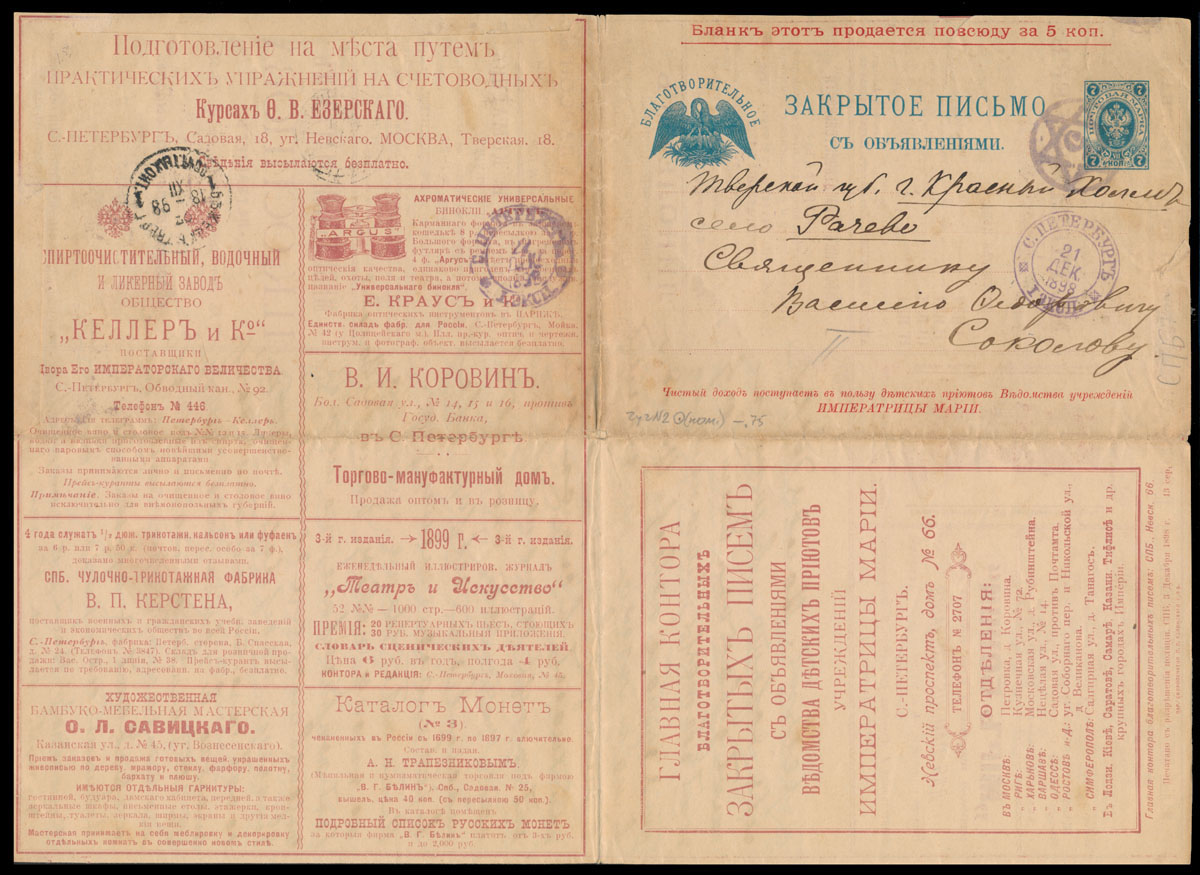 Подготовленіе на мѣста путемъ
ПРАКТИЧЕСКИХЪ УПРАЖНЕНІЙ НА СЧЕТОВОДНЫХЪ
Курсахъ Ѳ. В. ЕЗЕРСКАГО.
С.-ПЕТЕРБУРГЪ, Садовая, 18, уг. Невскаго. МОСКВА, Тверская. 18.
Свѣдѣнія высылаются безплатно.
18 XII 98
СПИРТООЧИСТИТЕЛЬНЫЙ, ВОДОЧНЫЙ
И ЛИКЕРНЫЙ ЗАВОДЪ
ОБЩЕСТВО
„КЕЛЛЕРЪ и Ко“
ПОСТАВЩИКИ
Двора Его ИМПЕРАТОРСКАГО ВЕЛИЧЕСТВА
С.-ПЕТЕРБУРГЪ, Обводный кан., № 92.
Телефонъ № 446
Адресъ для телеграммъ: Петербургъ-Келлеръ.
Заказы принимаются лично и письменно по почтѣ.
Прейсъ-куранты высылаются безплатно.
Примѣчаніе. Заказы на очищенное и столовое вино
исключительно для невинопольныхъ губерній.
4 года служатъ 1/2 дюж. трикотажн. кальсон или фуфаек
за 6 р. или 7 р. 50 к. (почтов. перес. особо за 7 ф.),
доказано многочисленными отзывами.
СПБ. ЧУЛОЧНО-ТРИКОТАЖНАЯ ФАБРИКА
В. П. КЕРСТЕНА,
поставщик военных и гражданских учебн. заведеній
и экономическихъ обществъ во всей Россіи.
ХУДОЖЕСТВЕННАЯ
БАМБУКО-МЕБЕЛЬНАЯ МАСТЕРСКАЯ
О. Л. САВИЦКАГО.
Казанская ул., д. № 45, (уг. Вознесенскаго).
Пріемъ заказовъ и продажа готовых вещей, украшенных
живописью по дереву, мрамору, стеклу, фарфору, полотну,
бархату и плюшу.
ИМѢЮТСЯ ОТДѢЛЬНЫЕ ГАРНИТУРЫ:
Мастерская принимаетъ на себя меблировку и декорировку
отдѣльныхъ комнатъ въ совершенно новомъ стилѣ.
АХРОМАТИЧЕСКІЕ УНИВЕРСАЛЬНЫЕ
БИНОКЛИ
"ARGUS"
названіе „Универсальнаго бинокля“
Е. КРАУСЪ и
Фабрика оптическихъ инструментовъ въ ПАРИЖѢ.
В. И. КОРОВИНЪ.
Бол. Садовая ул., № 14, 15 и 16, противъ
Госуд. Банка,
въ С. Петербургѣ
Торгово-мануфактурный домъ.
Продажа оптомъ и въ розницу.
3-й г. изданія. → 1899 г. ← 3-й г. изданія.
ЕЖЕНЕДѢЛЬНЫЙ ИЛЛЮСТРИРОВ. ЖУРНАЛЪ
„Театръ и Искусство“
52 №№ — 1000 стр. — 600 иллюстрацій.
ПРЕМІЯ: 20 РЕПЕРТУАРНЫХЪ ПЬЕСЪ, СТОЮЩИХЪ
30 РУБ. МУЗЫКАЛЬНЫЯ ПРИЛОЖЕНІЯ.
СЛОВАРЬ СЦЕНИЧЕСКИХЪ ДѢЯТЕЛЕЙ.
Цѣна 6 руб. въ годъ, полгода 4 руб.
КОНТОРА и РЕДАКЦІЯ: С.-Петербургъ, Моховая, № 45.
Каталогъ Монетъ
(№ 3).
чеканенныхъ въ Россіи съ 1699 г. по 1897 г. включительно.
Состав. и издан.
А. Н. ТРАПЕЗНИКОВЫМЪ.
(Мѣняльная и нумизматическая торговля подъ фирмою
„В. Г. БѢЛИНЪ“) Спб., Садовая, № 25,
вышелъ, цѣна 40 коп. (съ пересылкою 50 коп.).
Въ каталогѣ помѣщенъ
ПОДРОБНЫЙ СПИСОКЪ РУССКИХЪ МОНЕТЪ
за которыя фирма „В. Г. Бѣлинъ“ платитъ отъ 3-хъ руб.
и до 2,000 руб.
Бланкъ этотъ продается повсюду за 5 коп.
БЛАГОТВОРИТЕЛЬНОЕ
ЗАКРЫТОЕ ПИСЬМО
СЪ ОБЪЯВЛЕНІЯМИ.
ПОЧТОВАЯ МАРКА
7 КОП.
Тверской губ. г. Красный Холмъ
село Рачево
Священнику
Василію Ѳедоровичу
Соколову.
С. ПЕТЕРБУРГЪ
21
ДЕК.
1898
СПБ
Чистый доходъ поступаетъ въ пользу дѣтскихъ пріютовъ Вѣдомства учрежденій
ИМПЕРАТРИЦЫ МАРІИ.
ГЛАВНАЯ КОНТОРА
БЛАГОТВОРИТЕЛЬНЫХЪ
ЗАКРЫТЫХЪ ПИСЕМЪ
СЪ ОБЪЯВЛЕНІЯМИ
ВѢДОМСТВА ДѢТСКИХЪ ПРІЮТОВЪ
УЧРЕЖДЕНІЙ
ИМПЕРАТРИЦЫ МАРІИ.
С.-ПЕТЕРБУРГЪ.
Невскій проспектъ, домъ № 66.
ТЕЛЕФОНЪ № 2707
ОТДѢЛЕНІЯ:
ВЪ МОСКВѢ: Петровка, д. Коровина.
„ РИГѢ: Кузнечная ул., № 72.
„ ХАРЬКОВѢ: Московская ул., д. Рубинштейна.
„ ВАРШАВѢ: Нецѣлая ул., № 14.
„ ОДЕССѢ: Садовая ул., противъ Почтамта.
„ РОСТОВѢ н-Д.: уг. Соборнаго пер. и Никольской ул.,
д. Великанова.
„ СИМФЕРОПОЛѢ: Салгирная ул., д. Танагосъ.
Въ Лодзи, Кіевѣ, Саратовѣ, Самарѣ, Казани, Тифлисѣ и др.
крупныхъ городахъ Имперіи.
Главная контора благотворительныхъ писемъ: СПБ., Невск. 66
Печатано съ разрѣшенія полиціи. СПБ. 3 Декабря 1898 г. 13 сер.